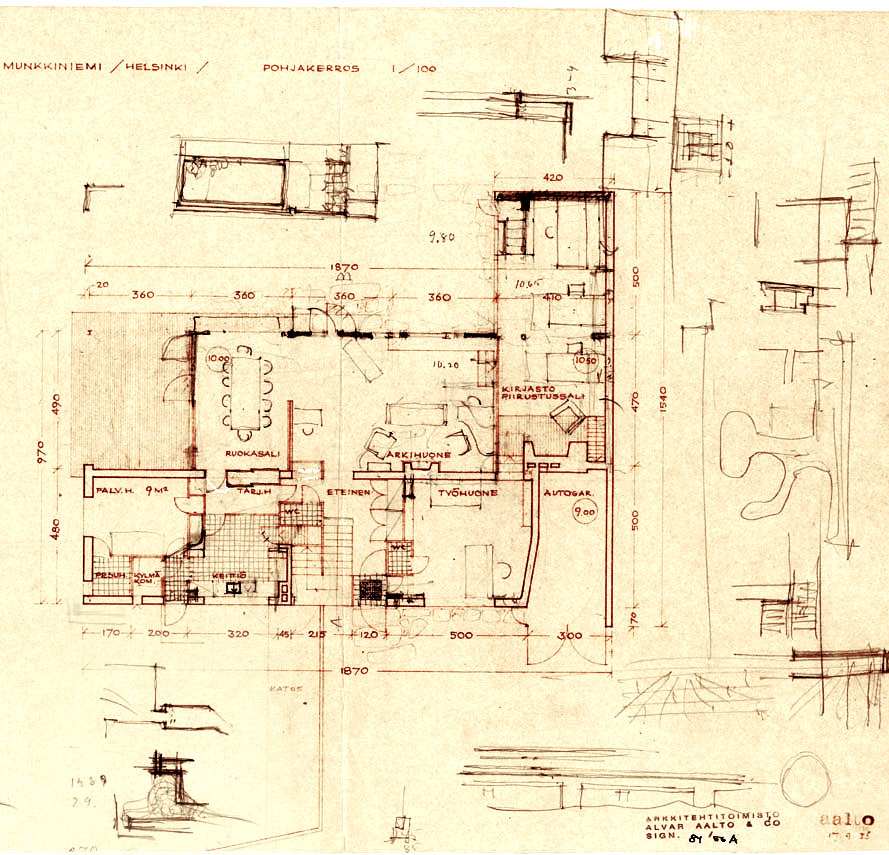 MUNKKINIEMI / HELSINKI / POHJAKERROS 1/100
3-4
420
9.80
1870
20 360 360 360 360 410
B
500
10.65
10.00
10.20
10.50
KIRJASTO
PIIRUSTUSSALI
490
970
470
1540
RUOKASALI
ARKIHUONE
PALV.H. 9 M²
TARJ.H
ETEINEN
TYÖHUONE
AUTOGAR.
WC
9.00
480
500
WC
PESUH.
KYLMÄ
KOM.
KEITTIÖ
A
70
170 200 320 45 215 120 500 300
1870
KATOS
29.
ARKKITEHTITOIMISTO
ALVAR AALTO & CO
SIGN.
aalto